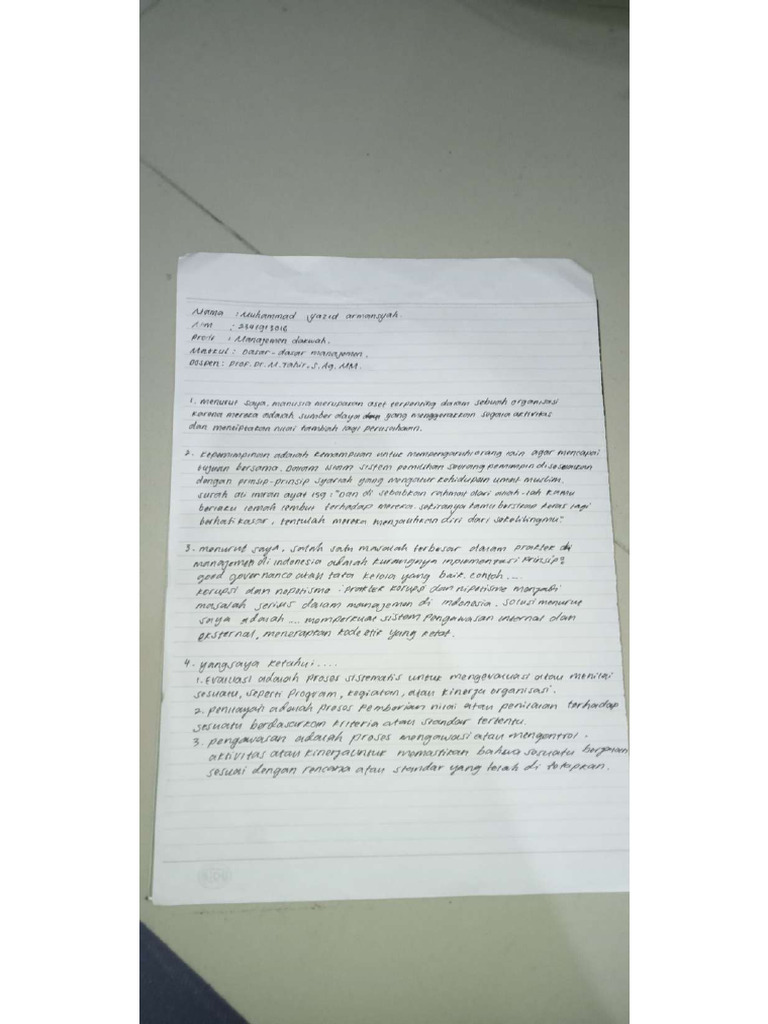 Nama : Muhammad yazid armansyah.
Nim : 2341913016
Prodi : Manajemen dakwah.
Matkul : Dasar-dasar manajemen.
Dospen : Prof. Dr. M. Tahir, S. Ag. MM.
1. menurut saya, manusia merupakan aset terpenting dalam sebuah organisasi
karena mereka adalah sumber daya yang menggerakkan segala aktivitas
dan menciptakan nilai tambah bagi perusahann.
2. Kepemimpinan adalah kemampuan untuk mempengaruhi orang lain agar mencapai
tujuan bersama. Dalam islam sistem pemilihan seorang pemimpin di sesuaikan
dengan prinsip-prinsip syariah yang mengatur kehidupan umat muslim.
surah ali imran ayat 159 : "Dan di sebabkan rahmat dari allah-lah kamu
berlaku lemah lembut terhadap mereka. sekiranya kamu bersikap keras lagi
berhati kasar, tentulah mereka menjauhkan diri dari sekelilingmu."
3. menurut saya, salah satu masalah terbesar dalam praktek
manajemen di indonesia adalah kurangnya implementasi prinsip²
good governance atau tata kelola yang baik. contoh,....
korupsi dan nepotisme : praktek korupsi dan nipotisme menjadi
masalah serius dalam manajemen di indonesia. solusi menurut
saya adalah .... memperkuat sistem pengawasan internal dan
eksternal, menerapkan kode etik yang ketat.
4. yang saya ketahui ....
1. Evaluasi adalah proses sistematis untuk mengevaluasi atau menilai
sesuatu, seperti program, kegiatan, atau kinerja organisasi.
2. penilayan adalah proses pemberian nilai atau penilaian terhadap
sesuatu berdasarkan kriteria atau standar tertentu.
3. pengawasan adalah proses mengawasi atau mengontrol.
aktivitas atau kinerja untuk memastikan bahwa sesuatu berjalan
sesuai dengan rencana atau standar yang telah di tetapkan.